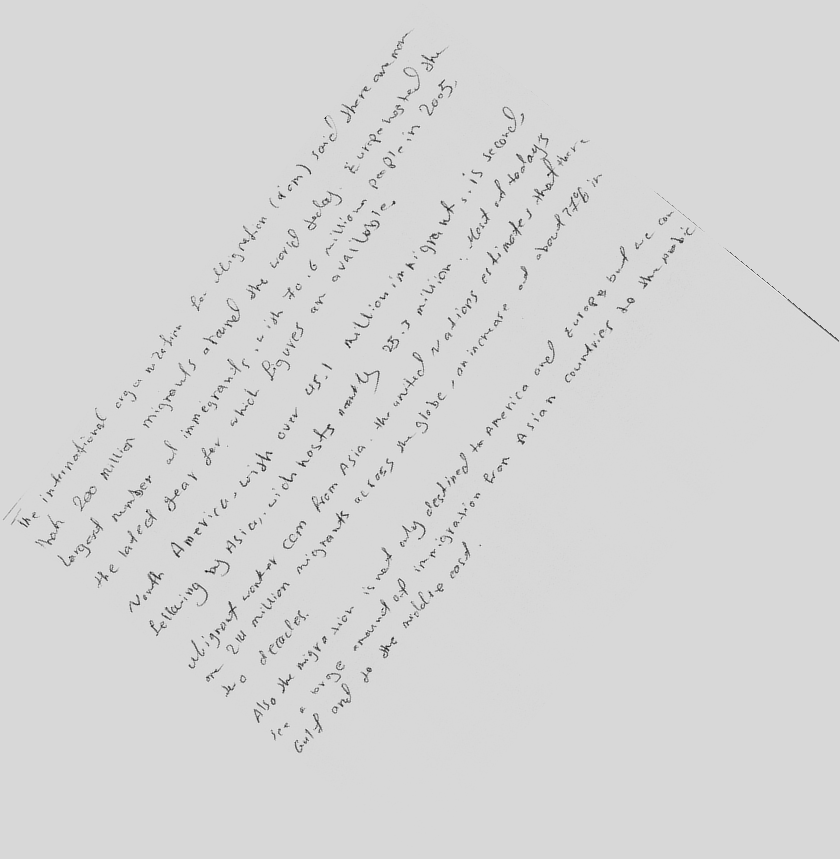 The intrnational organization for Migration (iom) said there are more
than 200 million migrants around the world today. Europe hosted the
largest number of immegrants, with 70.6 million people in 2005,
the latest year for which figures are available.
North America, with over 45.1 million immigrants, is second,
following by Asia, wich hosts nearly 25.3 million. Most of todays
Migrant worker com from Asia. the united nations estimates that there
are 214 million migrants across the globe, an increase of about 77% in
two decades.
Also the migration is not only destined to America and Europe but we can
see a large amount of immigration from Asian countries to the arabic
Gulf and to the middle east.